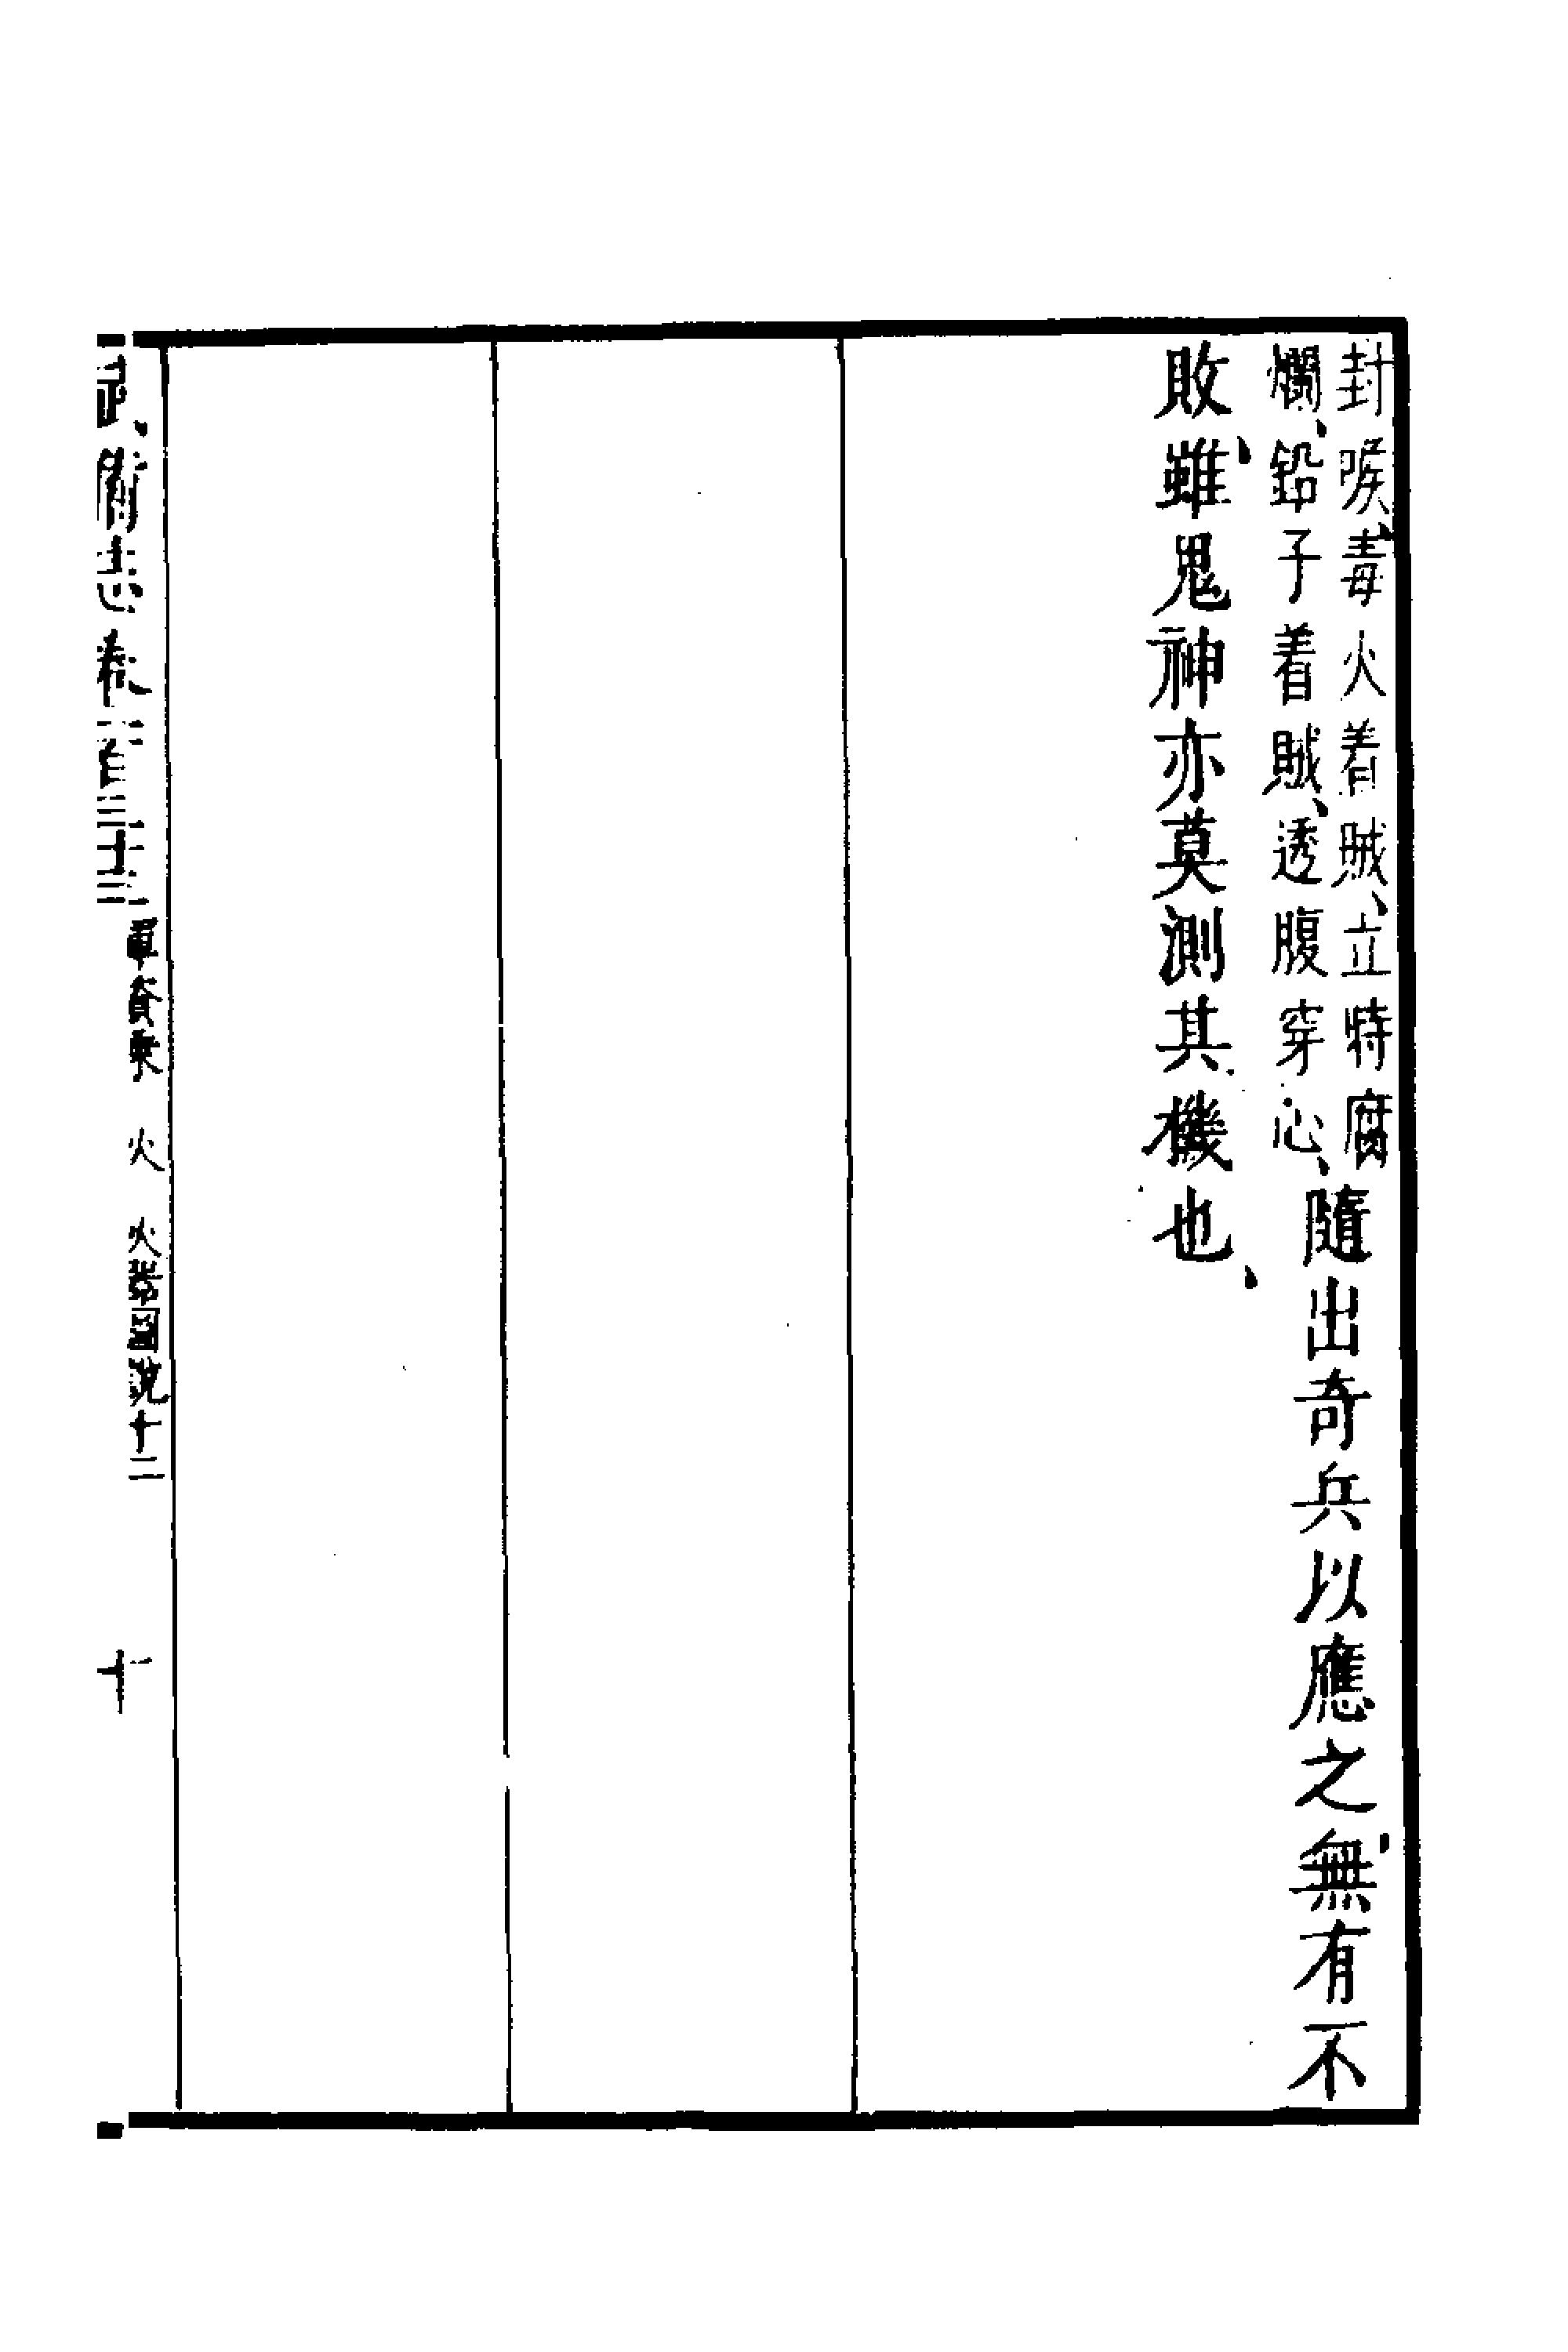 封喉、毒火着賊、立特腐
爛、鉛子着賊、透腹穿心、
隨出奇兵以應之、無有不
敗、雖鬼神亦莫測其機也、
武備志卷一百三十三 軍資乘 火 火器圖說十二 十